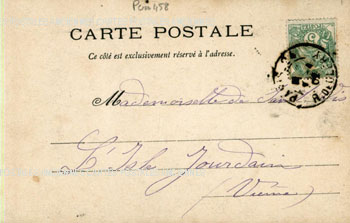 Poi 458
CARTE POSTALE
Ce côté est exclusivement réservé à l'adresse.
Mademoiselle de
L'Isle Jourdain
(Vienne)